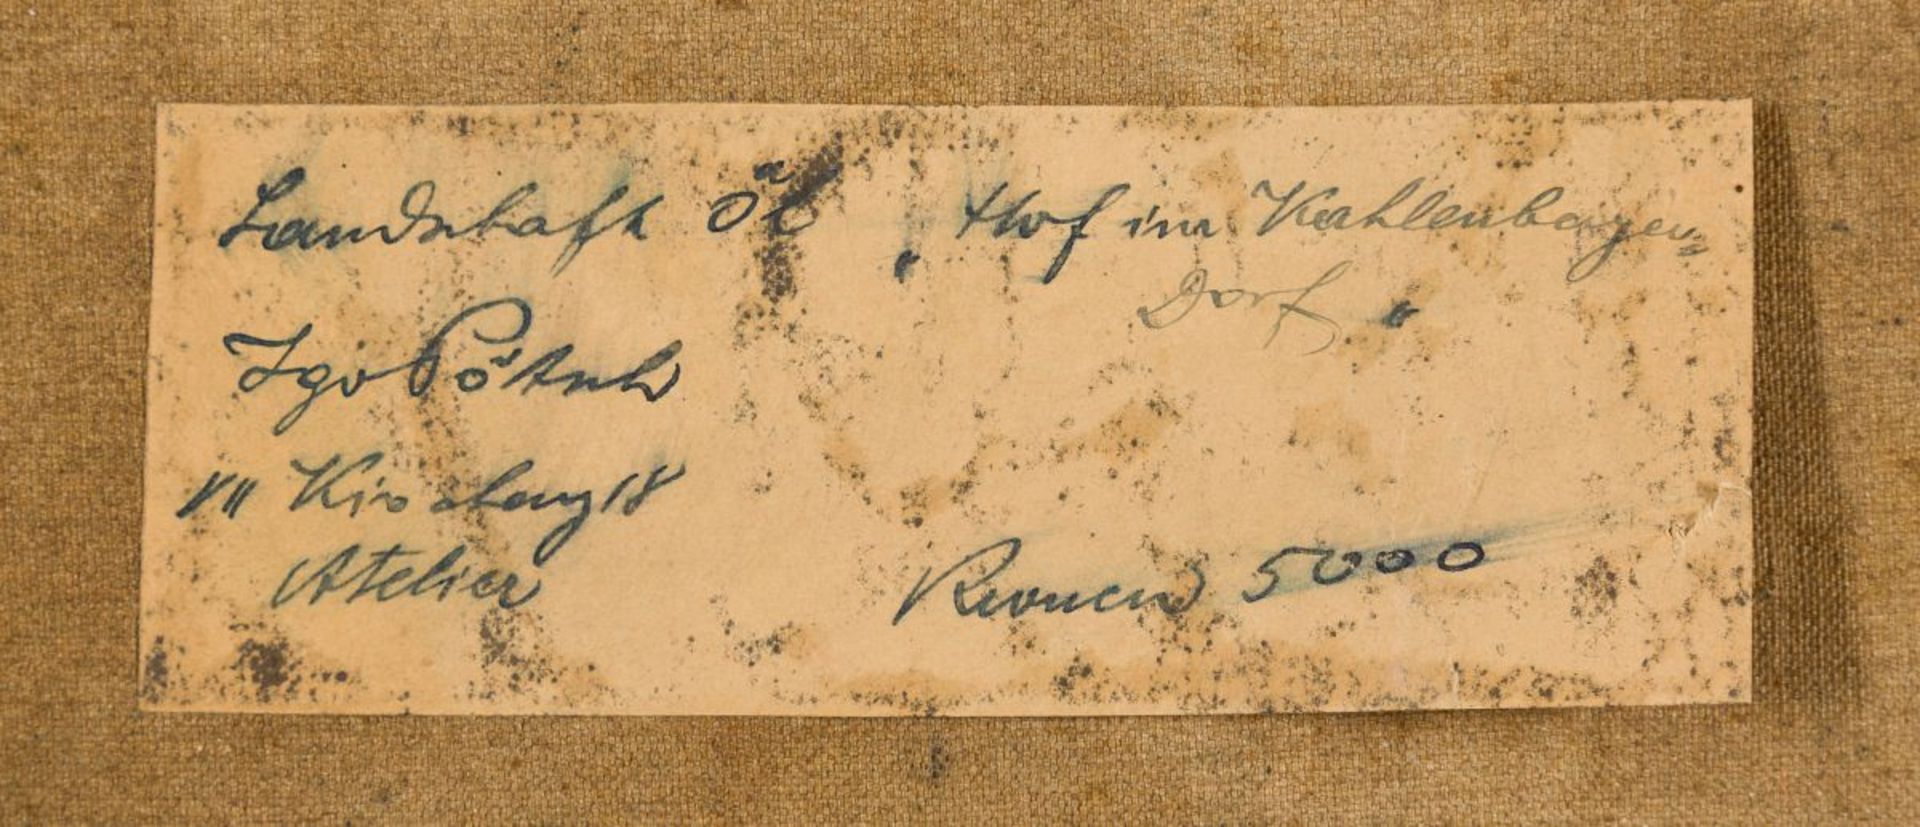 Landschaft Öl „Hof im Kahlenberger-
Dorf"
Igo Pötsch
VII Kirchberg 18
Atelier
Kronen 5000